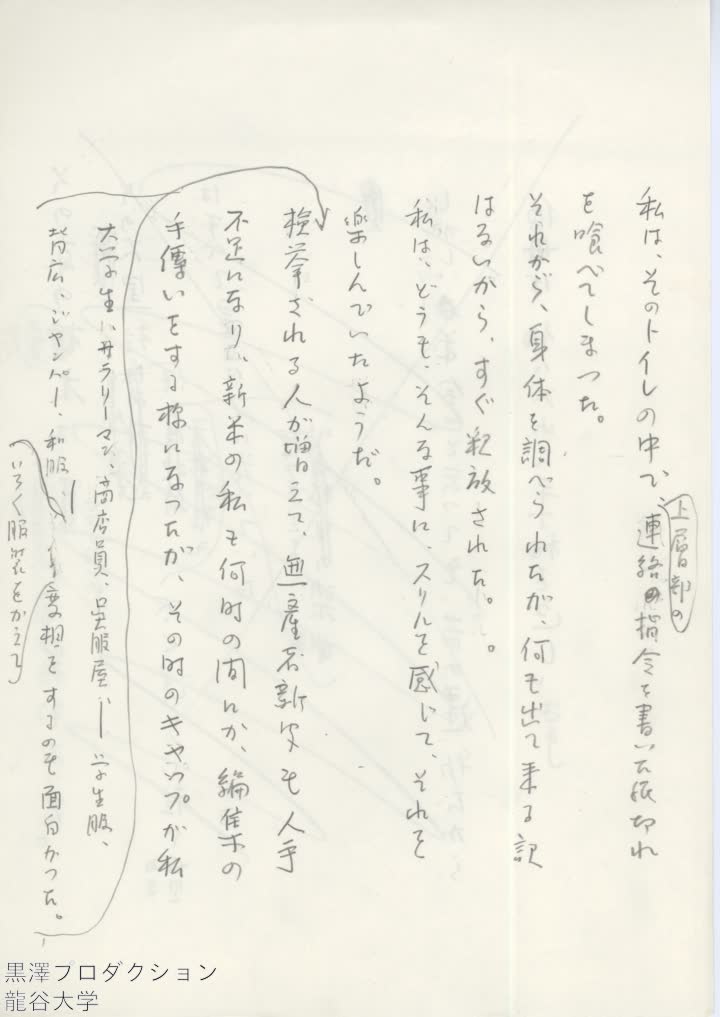 私は、そのトイレの中で、連絡の指令を書いた紙切れ
上層部の
を喰べてしまつた。
それから、身体を調べられたが、何も出て来る訳
はないから、すぐ釈放された。
私は、どうも、そんな事に、スリルを感じて、それを
楽しんでいたようだ。
検挙される人が増えて、無産者新聞も人手
不足になり、新米の私も何時の間にか、編集の
手傳いをする様になつたが、その時のキャップが私
大学生、サラリーマン、商店員、呉服屋、――学生服、
背広、ジャンパー、和服、
変相をするのも面白かつた。
いろ〱服装をかえて
黒澤プロダクション
龍谷大学